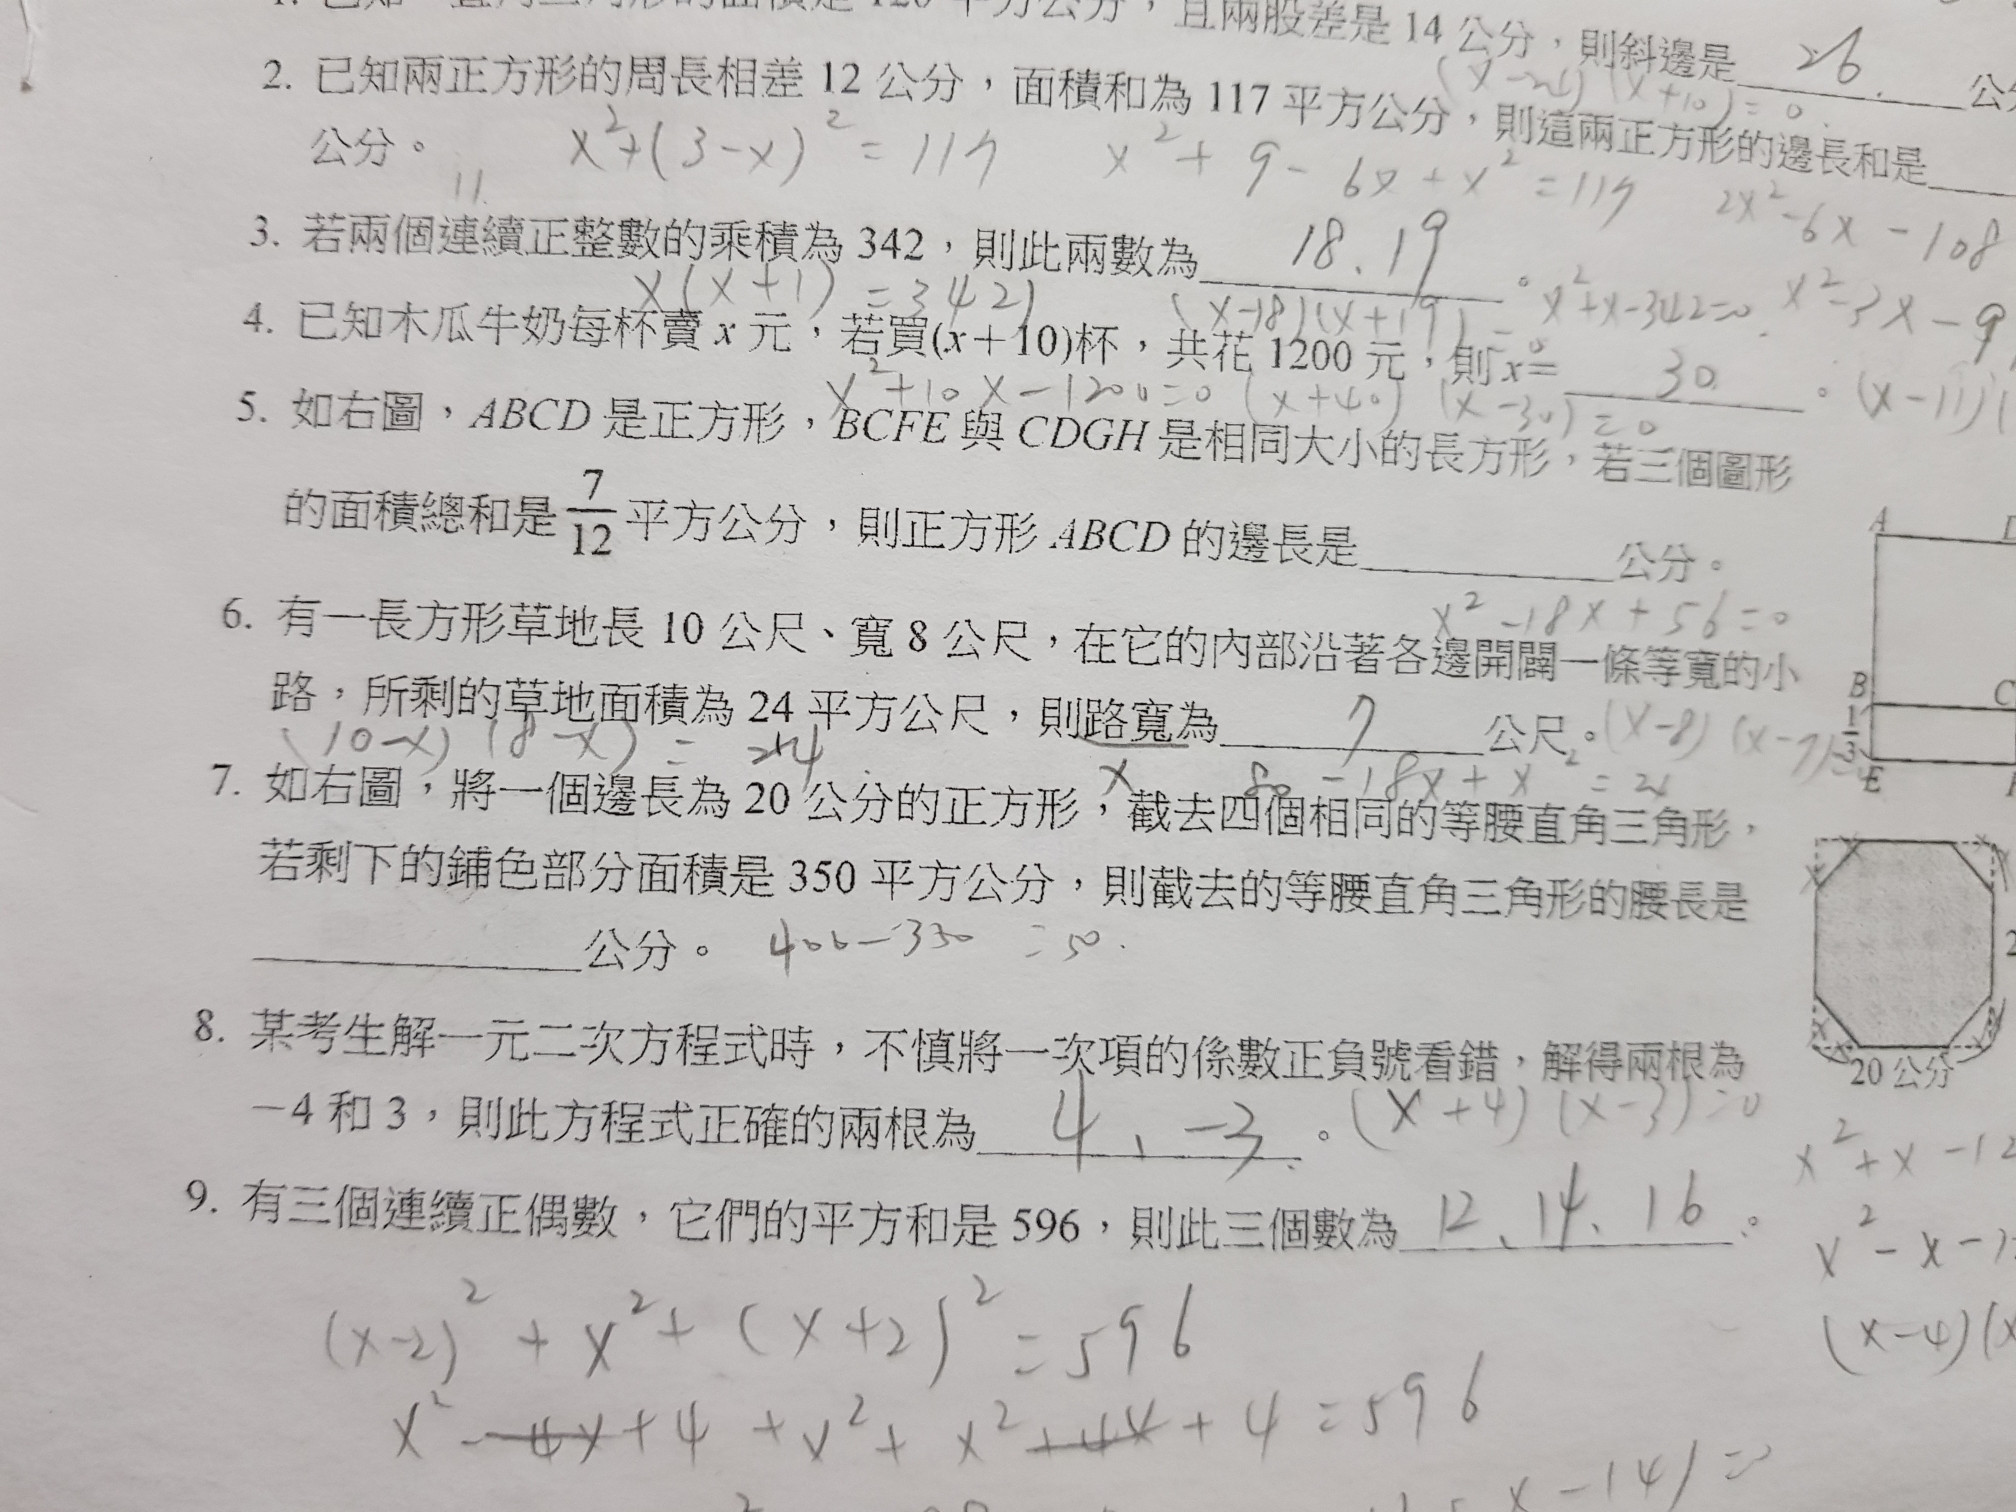 且兩股差是 14 公分，則斜邊是 26 公分
(x-24)(x+10)=0
2. 已知兩正方形的周長相差 12 公分，面積和為 117 平方公分，則這兩正方形的邊長和是
公分。 x²+(3-x)²=117 x²+9-6x+x²=117 2x²-6x-108
11.
3. 若兩個連續正整數的乘積為 342，則此兩數為 18、19 。
x(x+1)=342 (x-18)(x+19)=0 x²+x-342=0 x²-3x-
4. 已知木瓜牛奶每杯賣 x 元，若買(x＋10)杯，共花 1200 元，則 x＝ 30 。
x²+10x-1200=0 (x+40)(x-30)=0 (x-11)(
5. 如右圖，ABCD 是正方形，BCFE 與 CDGH 是相同大小的長方形，若三個圖形
的面積總和是 7/12 平方公分，則正方形 ABCD 的邊長是 公分。
A
B C
1/3
E
x²-18x+56=0
6. 有一長方形草地長 10 公尺、寬 8 公尺，在它的內部沿著各邊開闢一條等寬的小
路，所剩的草地面積為 24 平方公尺，則路寬為 7 公尺。 (x-8)(x-7)
(10-x)(8-x)=24 x 80-18x+x²=24
7. 如右圖，將一個邊長為 20 公分的正方形，截去四個相同的等腰直角三角形，
若剩下的鋪色部分面積是 350 平方公分，則截去的等腰直角三角形的腰長是
公分。 400-350=50.
20 公分
8. 某考生解一元二次方程式時，不慎將一次項的係數正負號看錯，解得兩根為
－4 和 3，則此方程式正確的兩根為 4、-3 。 (x+4)(x-3)=0
x²+x-12
9. 有三個連續正偶數，它們的平方和是 596，則此三個數為 12、14、16 。
x²-x-
(x-2)²+x²+(x+2)²=596
(x-4)(x
x²-4x+4+x²+x²+4x+4=596
x-14)=0